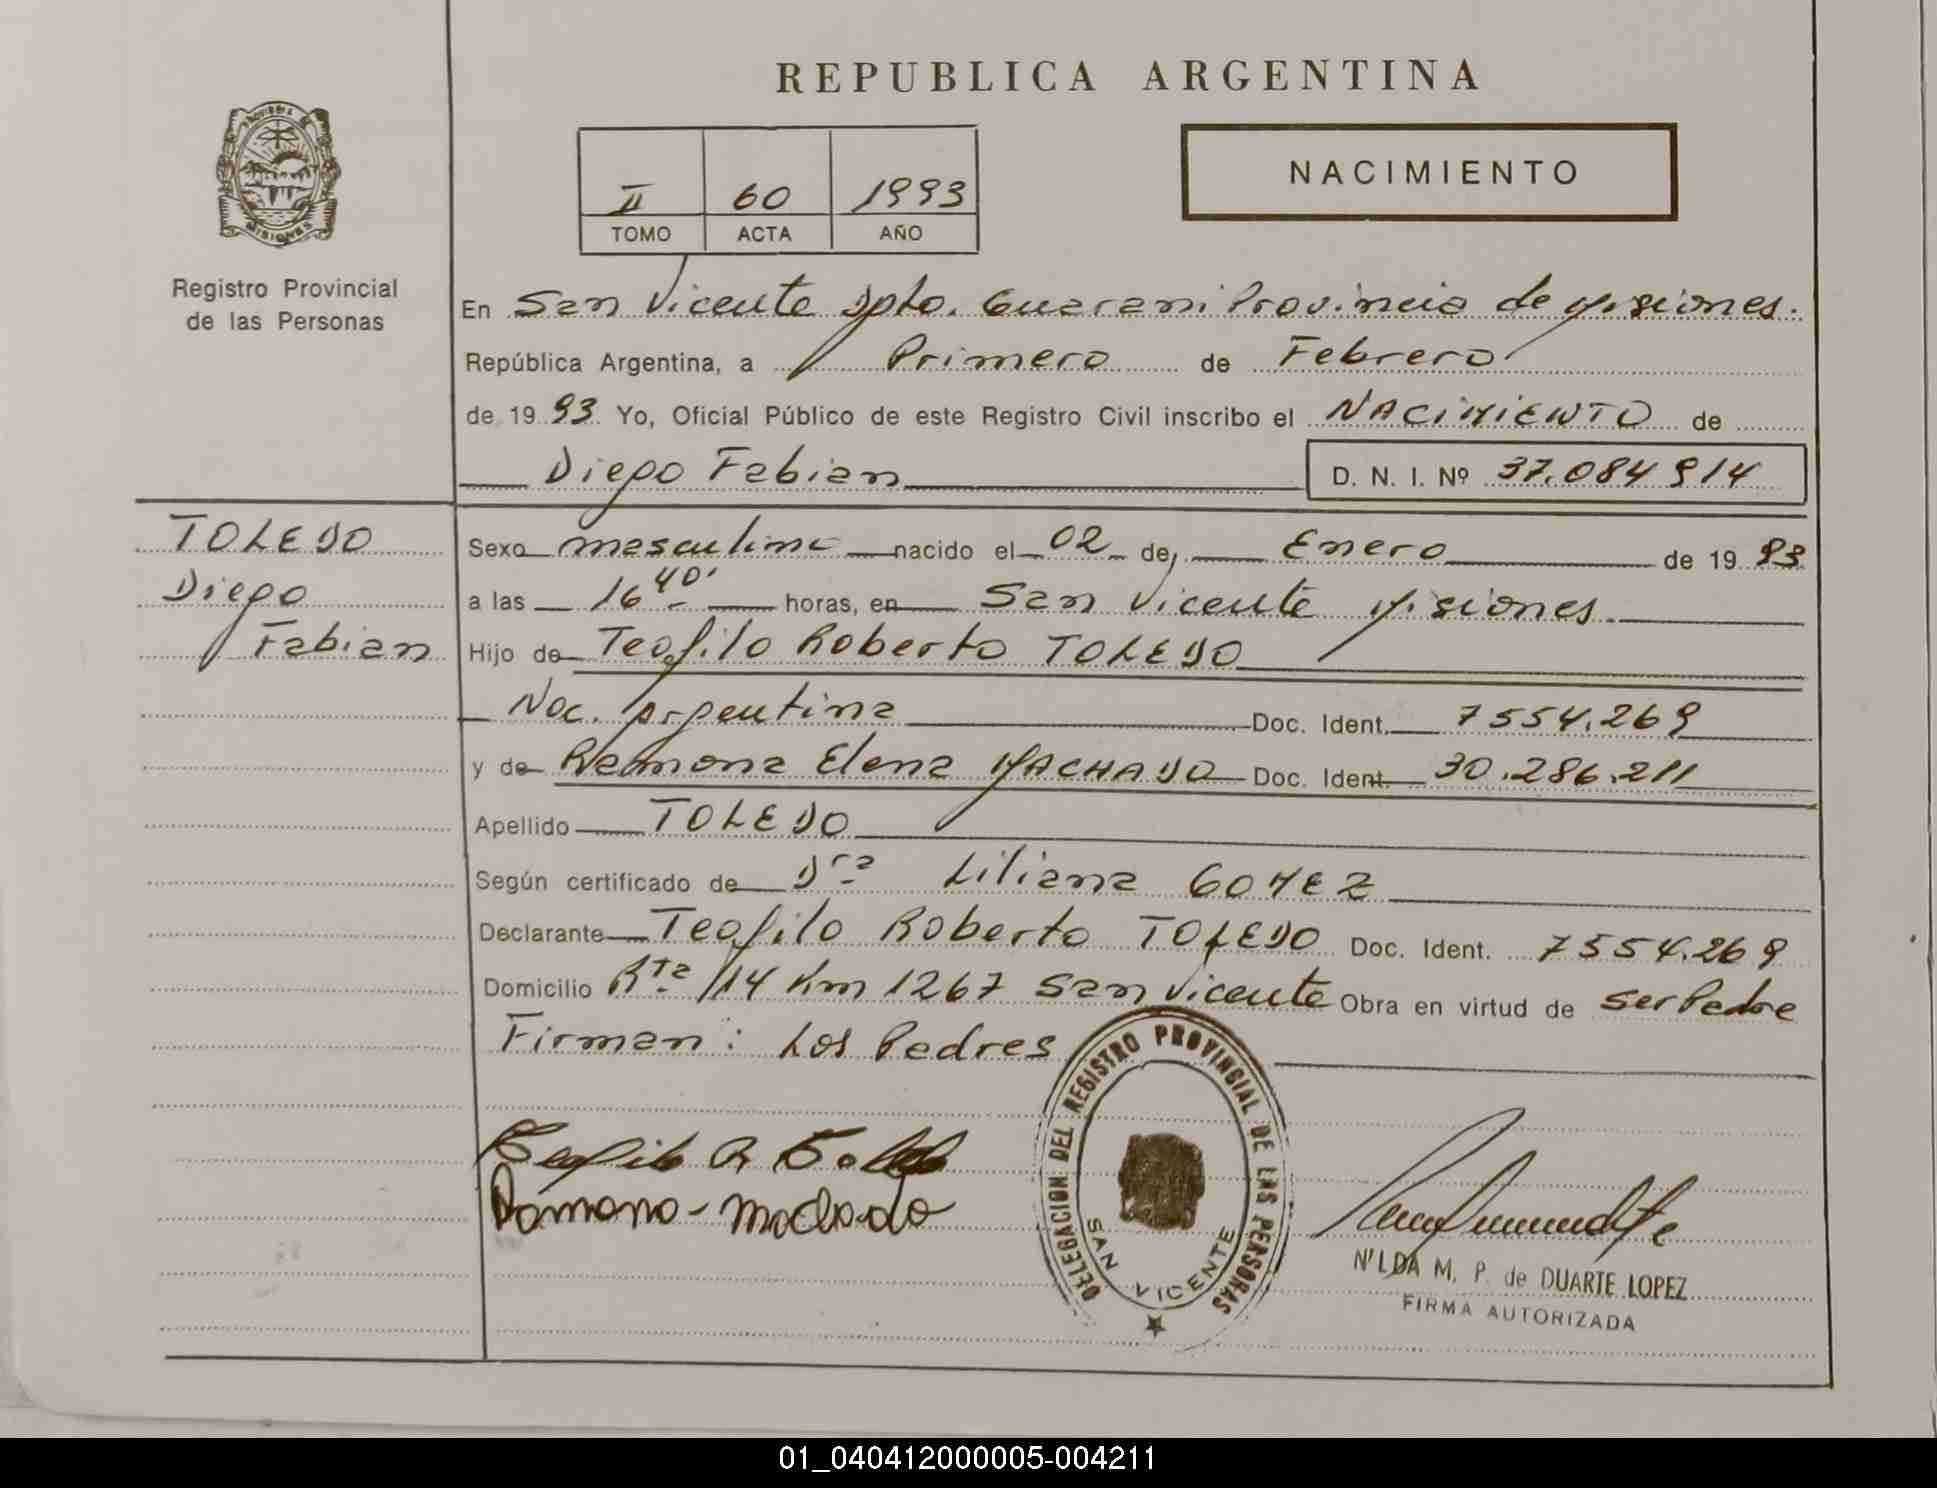 REPUBLICA ARGENTINA
PROVINCIA DE
MISIONES
Registro Provincial
de las Personas
II 60 1993
TOMO ACTA AÑO
NACIMIENTO
En San Vicente Dpto. Guarani Provincia de Misiones.
República Argentina, a Primero de Febrero
de 1993 Yo, Oficial Público de este Registro Civil inscribo el NACIMIENTO de
Diego Fabian D. N. I. Nº 37.084914
TOLEDO
Diego
Fabian
Sexo masculino nacido el 02 de Enero de 1993
a las 16 40' horas, en San Vicente Misiones.
Hijo de Teofilo Roberto TOLEDO
Nac. Argentina Doc. Ident. 7554.269
y de Ramona Elena MACHADO Doc. Ident. 30.286.211
Apellido TOLEDO
Según certificado de Dra Liliana GOMEZ
Declarante Teofilo Roberto TOLEDO Doc. Ident. 7554.269
Domicilio Rta 14 Km 1267 San Vicente Obra en virtud de ser Padre
Firman: Los Padres
Teofilo R Toledo
Ramona - Machado
DELEGACION DEL REGISTRO PROVINCIAL DE LAS PERSONAS
SAN VICENTE
NILDA M. P. de DUARTE LOPEZ
FIRMA AUTORIZADA
01_040412000005-004211